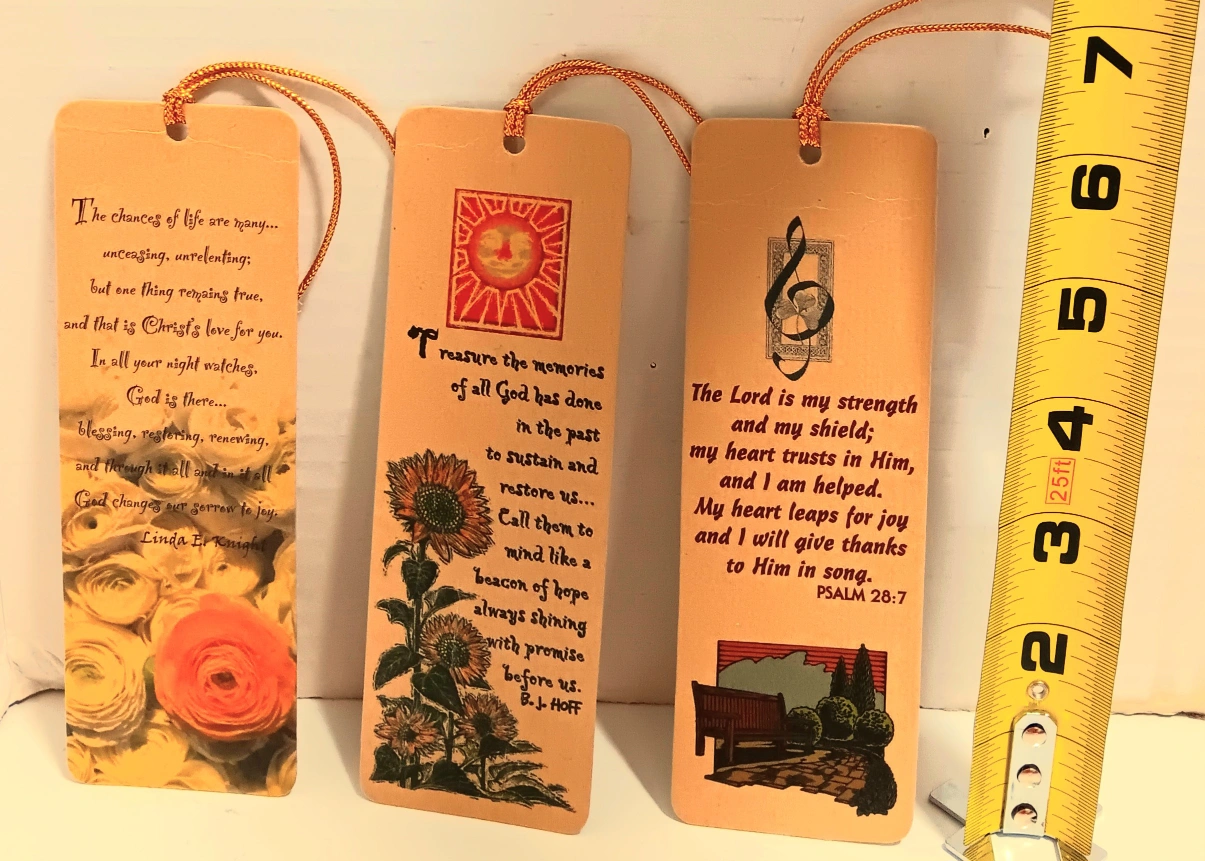 The chances of life are many...
unceasing, unrelenting;
but one thing remains true,
and that is Christ's love for you.
In all your night watches,
God is there...
blessing, restoring, renewing,
and through it all and in it all
God changes our sorrow to joy.
Linda E. Knight
Treasure the memories
of all God has done
in the past
to sustain and
restore us...
Call them to
mind like a
beacon of hope
always shining
with promise
before us.
B. J. HOFF
The Lord is my strength
and my shield;
my heart trusts in Him,
and I am helped.
My heart leaps for joy
and I will give thanks
to Him in song.
PSALM 28:7
7
6
5
4
25ft
3
2